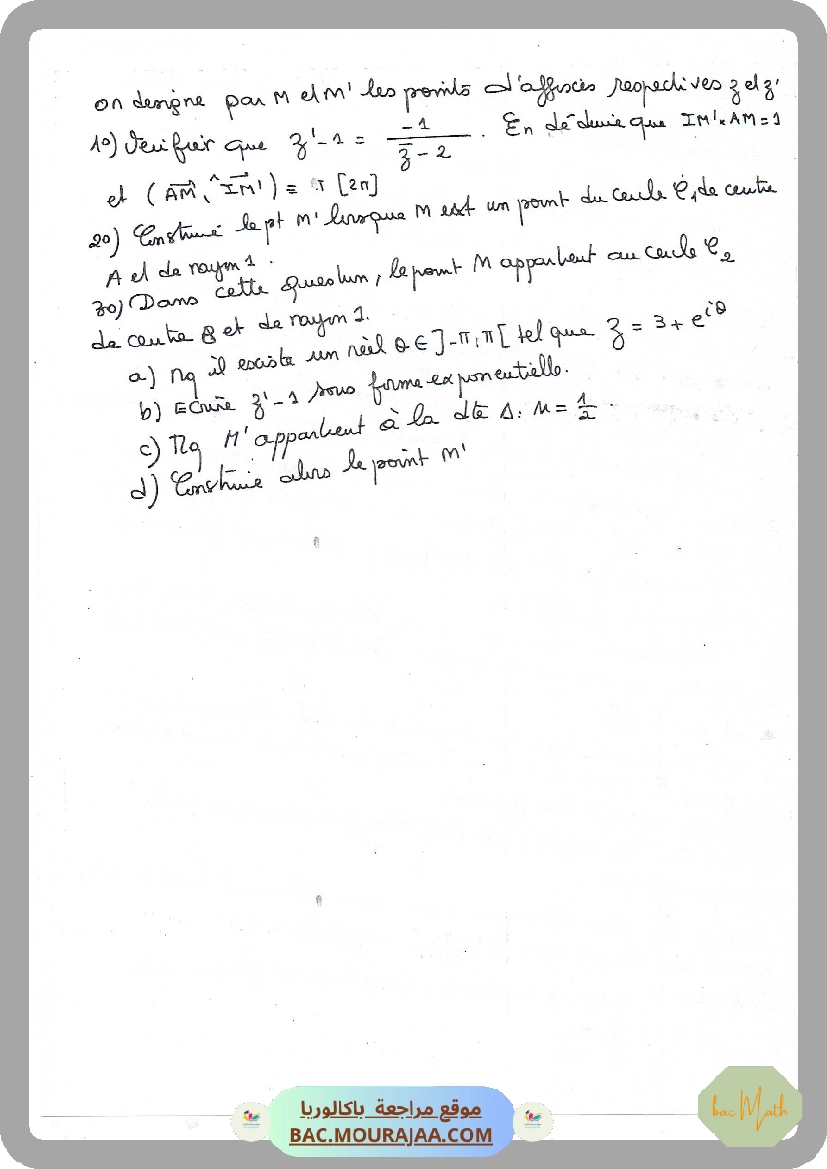 on designe par M et M' les points d'affixes respectives z et z'
1°) Verifier que z' - 1 = -1 / (z̄ - 2) . En déduire que IM' x AM = 1
et (AM→ ,^ IM'→) ≡ π [2π]
2°) Construire le pt M' lorsque M est un point du cercle C₁ de centre
A et de rayon 1.
3°) Dans cette question, le point M appartient au cercle C₂
de centre B et de rayon 1.
a) Mq il existe un réel θ ∈ ]-π, π[ tel que z = 3 + e^{iθ}
b) Ecrire z' - 1 sous forme exponentielle.
c) Mq M' appartient à la dte Δ: x = 1/2 .
d) Construire alors le point M'
موقع مراجعة باكالوريا
BAC.MOURAJAA.COM
bac Math